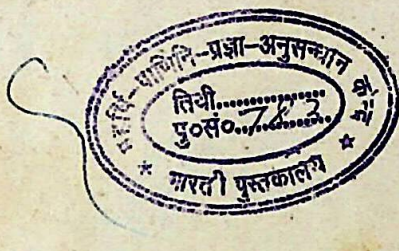 महर्षि-पाणिनि-प्रज्ञा-अनुसन्धान केन्द्र
तिथी..............
पु०सं०.7८३
* भारती पुस्तकालय *